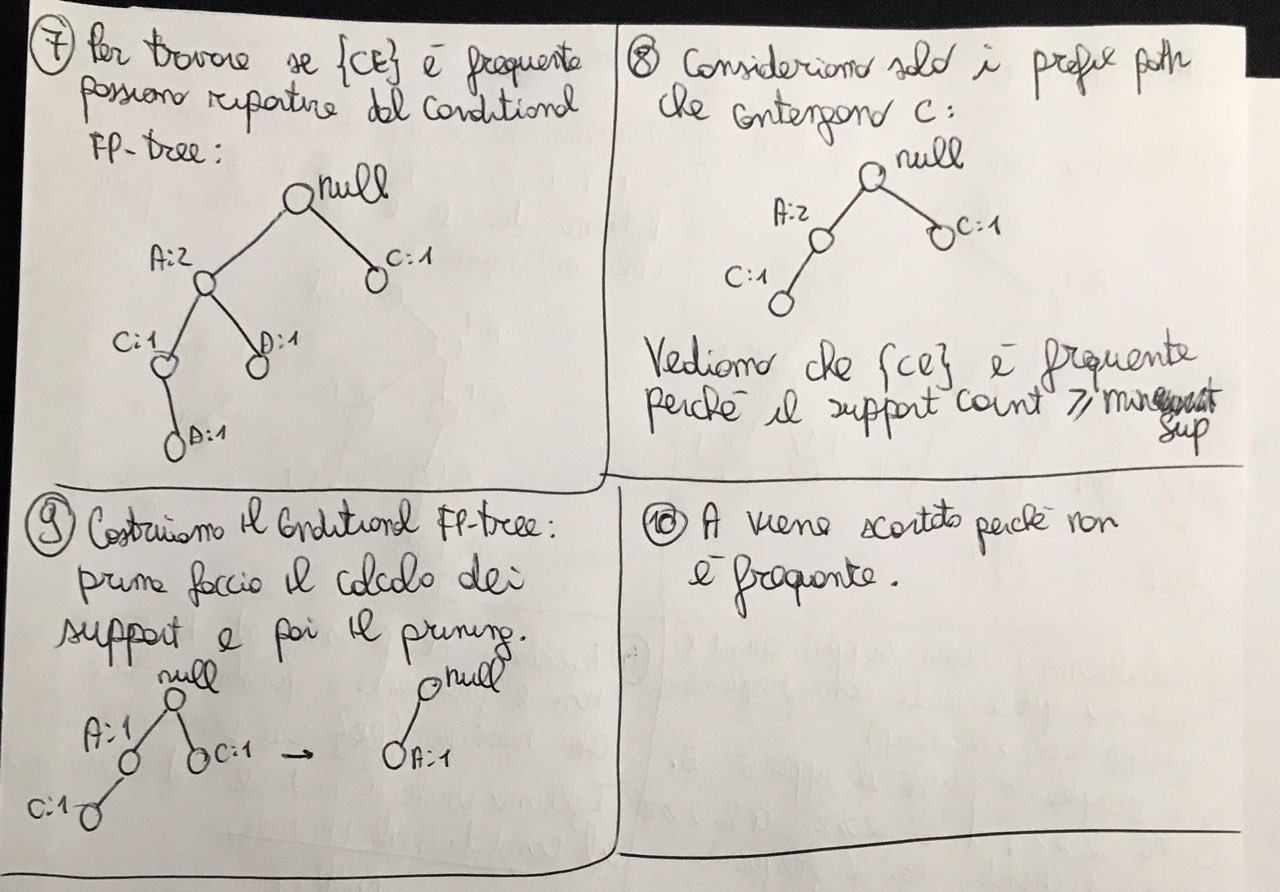 7 Per trovare se {CE} è frequente
possiamo ripartire dal conditional
FP-tree:
null
A:2
C:1
C:1
D:1
D:1
8 Consideriamo solo i prefix path
che contengono C:
null
A:2
C:1
C:1
Vediamo che {CE} è frequente
perché il support count ≥ min
sup
9 Costruiamo il conditional FP-tree:
prima faccio il calcolo dei
support e poi il pruning.
null
null
A:1
C:1 → A:1
C:1
10 A viene scartato perché non
è frequente.